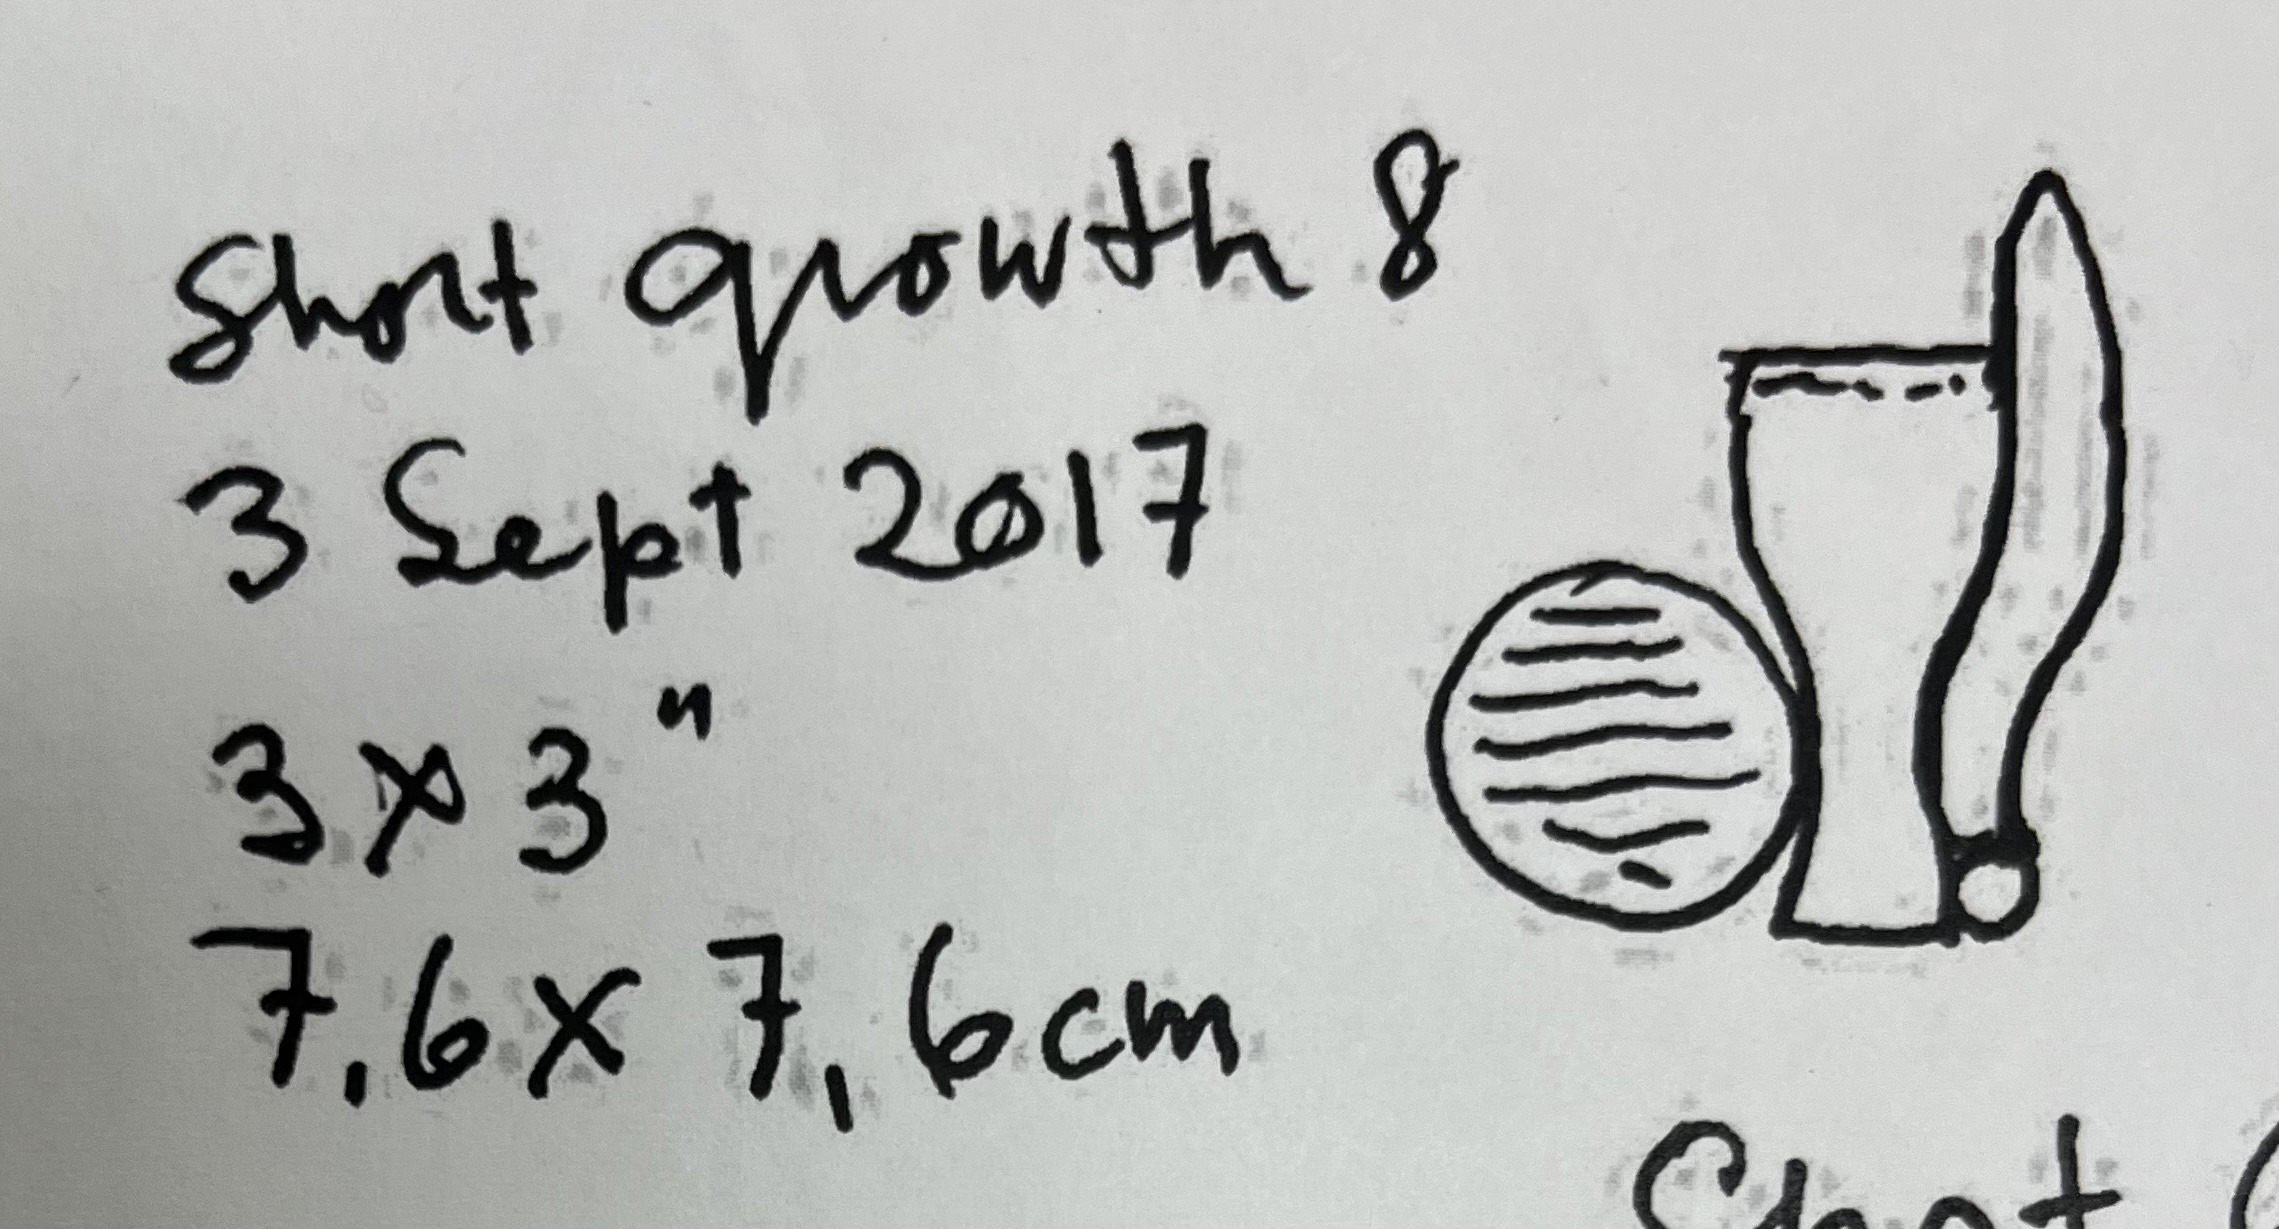 short growth 8
3 Sept 2017
3 x 3"
7,6 x 7,6 cm
Short